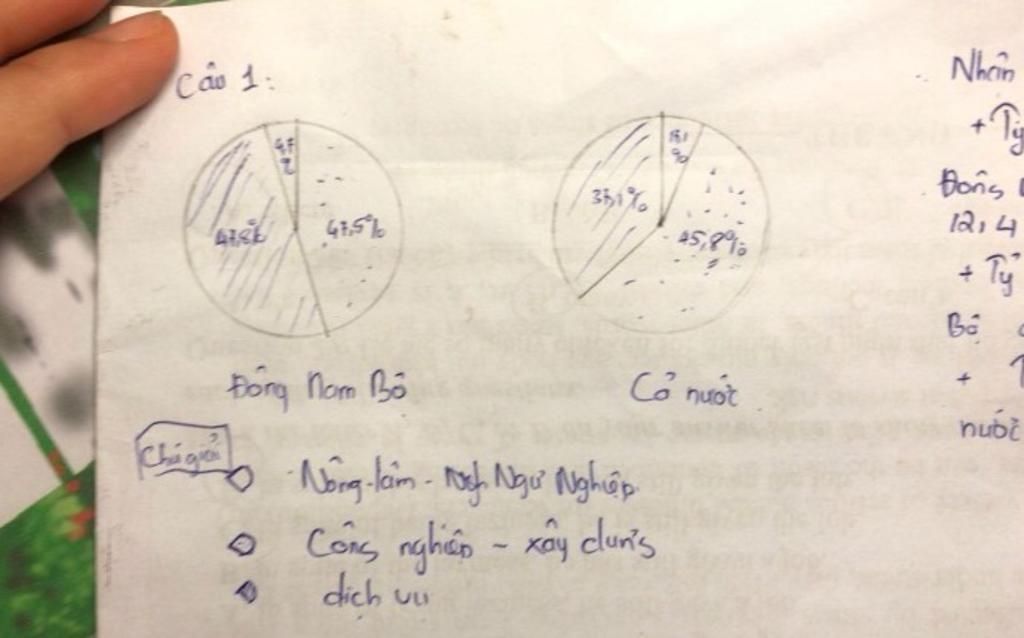 Câu 1:
47,8%
47,5%
37,1%
45,8%
Đông Nam Bộ
Cả nước
Chú giải
Nông-lâm- Ngư Nghiệp
Công nghiệp - xây dựng
dịch vụ
Nhận
+ Tỷ
Đông
12,4
+ Tỷ
Bộ
+
nước